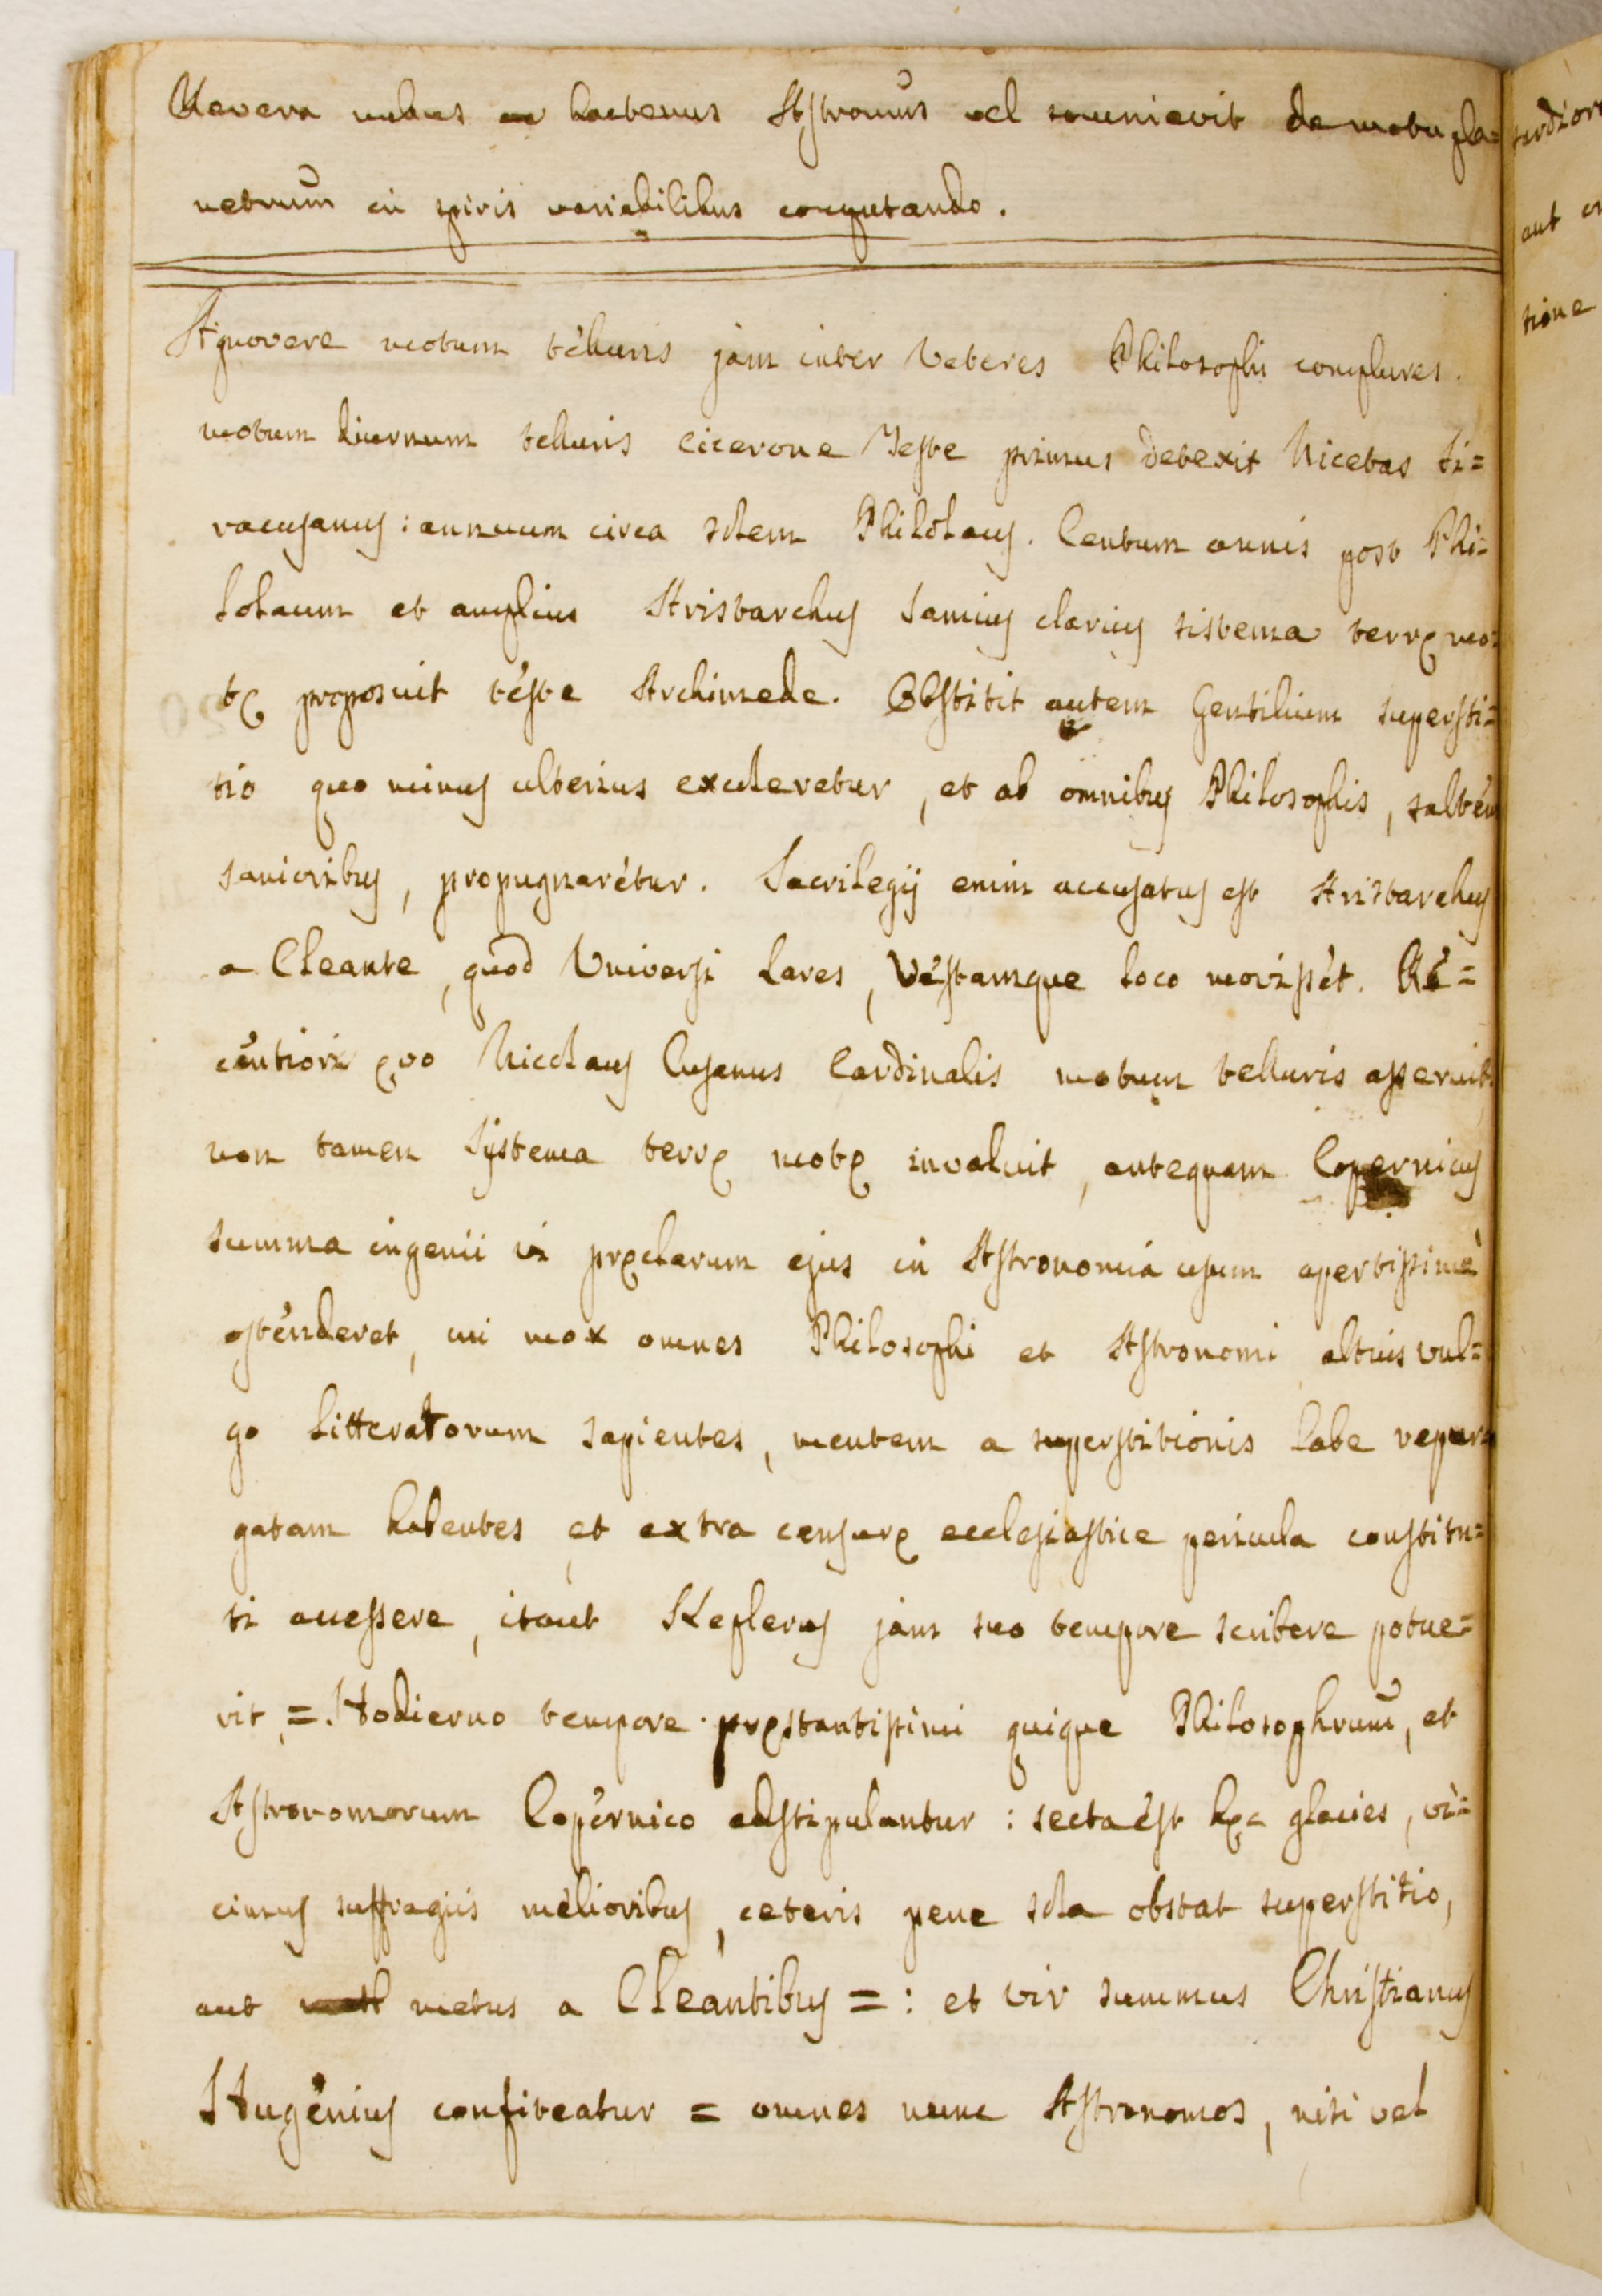 Revera nullus hactenus Astronomus vel somniavit de motu pla=
netrum in spiris variabilibus computando.
Agnovere motum telluris jam inter Veteres Philosophi complures.
motum diurnum telluris Cicerone Teste primus detexit Nicetas Si=
racusanus: annuum circa solem Philolaus. Centum annis post Phi=
lolaum et amplius Aristarchus Samius clarius sistema terrę mo=
tę proposuit téste Archimede. Obstitit autem Gentilium supersti=
tio quo minus ulterius excoleretur, et ab omnibus Philosophis, saltém
sanioribus, propugnarétur. Sacrilegij enim accusatus est Aristarchus
a Cleante, quod Universi Lares, Véstamque loco movissét. Ré=
céntiori ęvo Nicolaus Cusanus Cardinalis motum telluris asseruit,
non tamen Systema terrę motę invaluit, antequam Copernicus
summa ingenii vi pręclarum ejus in Astronomiá usum apertissimè
osténderet, cui mox omnes Philosophi et Astronomi altius vul=
go litteratorum sapientes, mentem a superstitionis labe repur=
gatam habentes et extra censurę ecclesiastice pericula constitu=
ti accessere, itaut Keplerus jam suo tempore scribere potue=
rit, = Hodierno tempore pręstantissimi quique Philosophrum, et
Astronomorum Copérnico adstipulantur: secta ést hęc glacies, vi=
cimus suffragiis mélioribus, ceteris pene sola obstat superstitio,
aut metus a Cleantibus =: et vir summus Christianus
Hugénius confiteatur = omnes nunc Astronomos, nisi vel
tardiore
aut
tione